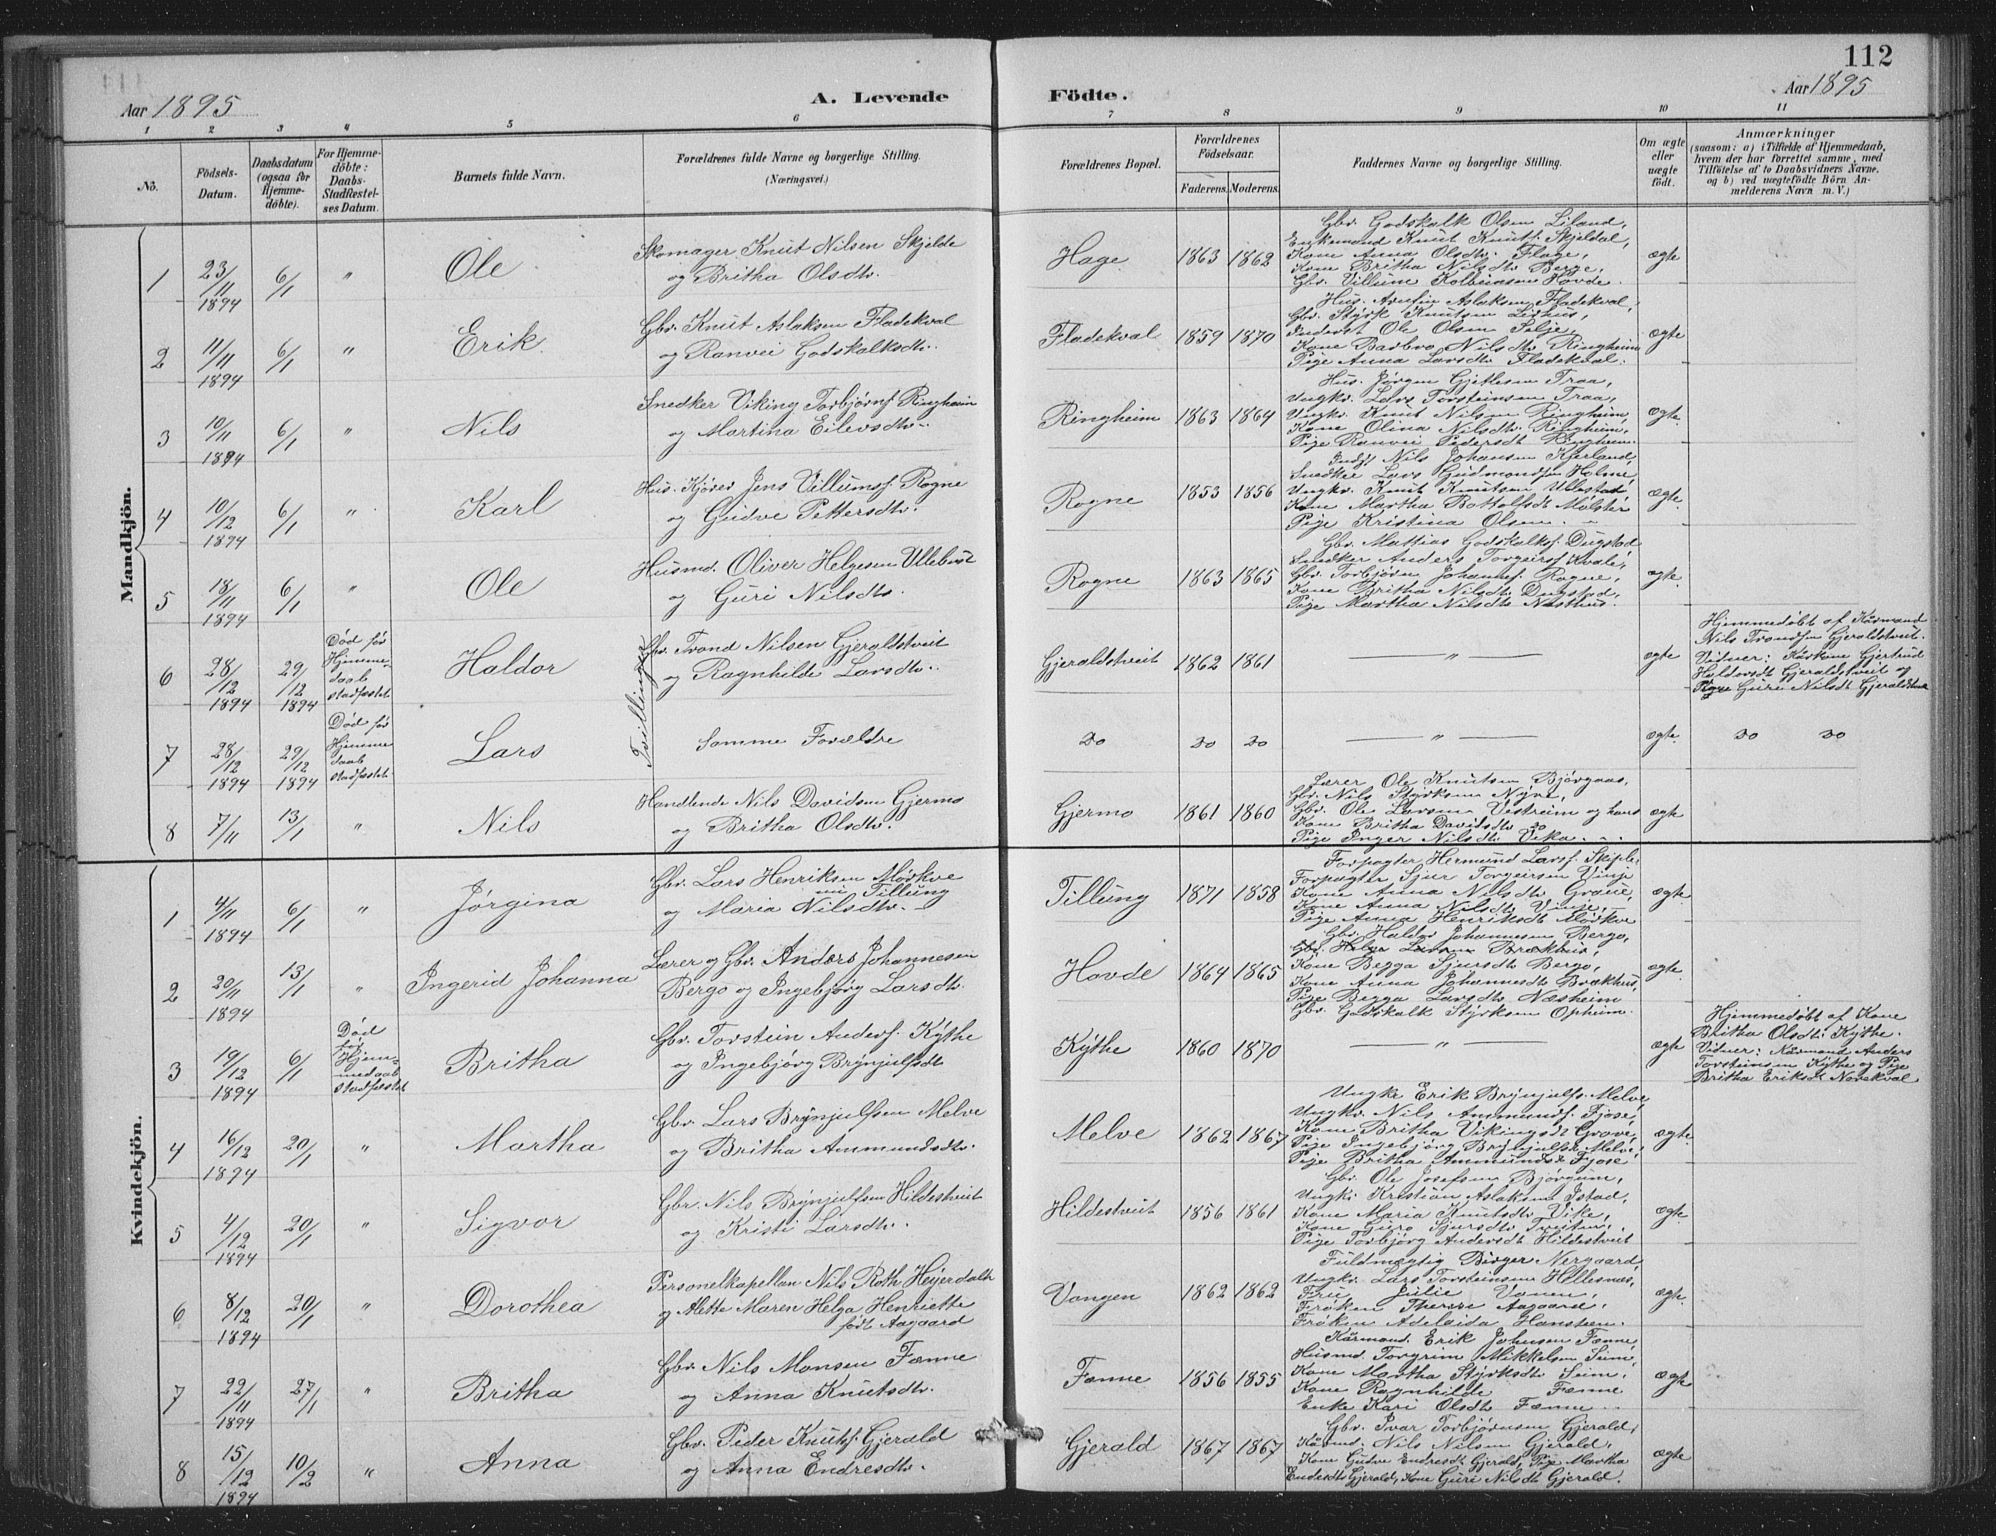 112
Aar 1895
A. Levende
Födte.
Aar 1895
1 2 3 4 5 6 7 8 9 10 11
No.
Födsels-
Datum.
Daabsdatum
(ogsaa for
Hjemme-
döbte).
For Hjemme-
döbte:
Daabs-
Stadfæstel-
ses Datum.
Barnets fulde Navn.
Forældrenes fulde Navne og borgerlige Stilling.
(Næringsvei.)
Forældrenes Bopæl.
Forældrenes
Födselsaar.
Faderens. Moderens.
Faddernes Navne og borgerlige Stilling.
Om ægte
eller
uægte
födt.
Anmærkninger
(saasom: a) i Tilfælde af Hjemmedaab,
hvem der har forrettet samme, med
Tilföielse af to Daabsvidners Navne,
og b) ved uægtefödte Börn An-
melderens Navn m. V.)
Mandkjön.
1 23/11 1894 6/1 " Ole
Skomager Knut Nilsen Skjelde
og Britha Olsdtr.
Hage 1863 1862
Gbr. Godskalk Olsen Liland,
Enkemand Knut Knuts. Skjeldal,
Kone Anna Olsdtr. Flage,
Kone Britha Nilsdtr Berge,
Gbr. Villum Kolbeinsen Hovde.
ægte
2 11/11 1894 6/1 " Erik
Gbr. Knut Aslaksen Fladekval
og Ranvei Godskalksdtr.
Fladekval 1859 1870
Hus. Arnfin Aslaksen Fladekval,
Gbr. Styrk Knutsen Lirhus,
Inderst Ole Olsen Selje,
Kone Barbro Nilsdtr Ringheim
Pige Anna Larsdtr Fladekval.
ægte
3 10/11 1894 6/1 " Nils
Snedker Viking Torbjørns. Ringheim
og Martina Eilevsdtr.
Ringheim 1863 1864
Hus. Jørgen Gjetlesen Traa,
Ungkr. Lars Torsteinsen Traa,
Ungkr. Knut Nilsen Ringheim,
Kone Olina Nilsdtr. Ringheim,
Pige Ranvei Pedersdt Ringheim.
ægte.
4 10/12 1894 6/1 " Karl
Hus. Kjører Jens Villums. Rogne
og Gudve Pettersdtr.
Rogne 1853 1856
Inds. Nils Johansen Kjerland,
Snedker Lars Gudmonds. Holme,
Ungkr. Knut Knutsen Ullestad
Kone Martha Bottolfsdt Mølster
Pige Kristina Olsen.
ægte.
5 18/11 1894 6/1 " Ole
Husmd. Oliver Helgesen Ullebust
og Guri Nilsdtr.
Rogne 1863 1865
Gbr. Mathias Godskalks. Dugstad
Snedker Anders Torgeirs. Kvale,
Gbr. Torbjørn Johannes. Rogne,
Kone Britha Nilsdtr Dugstad,
Pige Martha Nilsdtr Næsthus.
ægte.
6 28/12 1894 29/12 1894
Død før
Hjemme-
daab
stadfæstet
Haldor
Tvillinger
Gbr. Trond Nilsen Gjeraldstveit
og Ragnhilde Larsdtr.
Gjeraldstveit 1862 1861 — " — ægte
Hjemmedøbt af Kårmand
Nils Trondsen Gjeraldstveit.
Vidner: Kårkone Gjertrud
Haldorsdt Gjeraldstveit og
Pige Guri Nilsdt Gjeraldstveit
7 28/12 1894 29/12 1894
Død før
Hjemme
daab
stadfæstet.
Lars
Samme Forældre
do do do — " — ægte. do do
8 7/11 13/1 " Nils
Handlende Nils Davidsen Gjermo
og Britha Olsdtr.
Gjermo 1861 1860
Lærer Ole Knutsen Bjørgaas,
Gbr. Nils Styrksen Nyre,
Gbr. Ole Larsen Vestreim og hans
Kone Britha Davidsdtr do
Pige Inger Nilsdtr Vika.
ægte
Kvindekjön.
1 4/11 1894 6/1 " Jørgina
Gbr. Lars Henriksen Mørkve
nu Tillung
og Maria Nilsdtr.
Tillung 1871 1858
Forpagter Hermund Lars. Skiple,
Forpagter Sjur Torgeirsen Vinje
Kone Anna Nilsdtr Graue,
Kone Anna Nilsdtr Vinje,
Pige Anna Henriksdt Mørkve
ægte.
2 20/11 1894 13/1 " Ingerid Johanna
Lærer og Gbr. Anders Johannesen
Bergo og Ingebjørg Larsdtr.
Hovde 1864 1865
Gbr. Haldor Johannesen Bergo,
Gbr. Helge Larsen Brækhus,
Kone Begga Sjursdtr Bergo,
Kone Anna Johannesdt Brækhus,
Pige Begga Larsdtr Næsheim
Gbr. Godskalk Styrksen Opheim.
ægte.
3 19/12 1894 6/1
Død
før
Hjem-
medaab
stadfæstet
Britha
Gbr. Torstein Anders. Kÿthe
og Ingebjørg Brynjulfsdtr
Kÿthe 1860 1870 — " — ægte
Hjemmedøbt af Kone
Britha Olsdt. Kÿthe.
Vidner: Kårmand Anders
Torsteinsen Kÿthe og Pige
Britha Eriksdt Norekval
4 16/12 1894 20/1 " Martha
Gbr. Lars Brynjulfsen Melve
og Britha Ammundsdtr.
Melve 1862 1867
Ungkr Erik Brynjulfs. Melve,
Ungkr. Nils Ammunds. Fjose,
Kone Britha Vikingsdt Grove,
Pige Ingebjørg Brynjulfsdt Melve,
Pige Britha Ammundsdt Fjose
ægte.
5 4/12 1894 20/1 " Sigvor
Gbr. Nils Brynjulfsen Hildestveit
og Kristi Larsdtr.
Hildestveit 1856 1861
Gbr. Ole Josefsen Bjørgum,
Ungk. Kristian Aslaksen Istad,
Kone Maria Knutsdtr Vike,
Kone Guro Sjursdtr Tveiten,
Pige Torbjørg Andersdt Hildestveit
ægte.
6 8/12 1894 20/1 " Dorothea
Personelkapellan Nils Roth Heyerdalh
og Alette Maren Helga Henriette
født Aagaard
Vangen 1862 1862
Fuldmægtig Birger Nergaard,
Ungkr. Lars Torsteinsen Hellesnæs,
Fru Julie Vonen,
Frøken Therese Aagaard,
Frøken Adelaida Hanssen.
ægte.
7 22/11 1894 27/1 " Britha
Gbr. Nils Monsen Fenne
og Anna Knutsdtr.
Fenne 1856 1855
Kårmand. Erik Johnsen Fenne,
Husmd. Torgrim Mikkelsen Seim,
Kone Martha Styrksdtr Seim,
Kone Ragnhilde Fenne
Enke Kari Olsdtr Fenne.
ægte
8 15/12 1894 10/2 " Anna
Gbr. Peder Knuts. Gjerald
og Anna Endresdtr.
Gjerald 1867 1867
Gbr. Ivar Torbjørnsen Gjerald,
Kårmd. Nils Nilsen Gjerald,
Kone Gudve Endresdt Gjerald, Pige Martha
Endresdtr Gjerald, Kone Guri Nilsdt Gjerald.
ægte